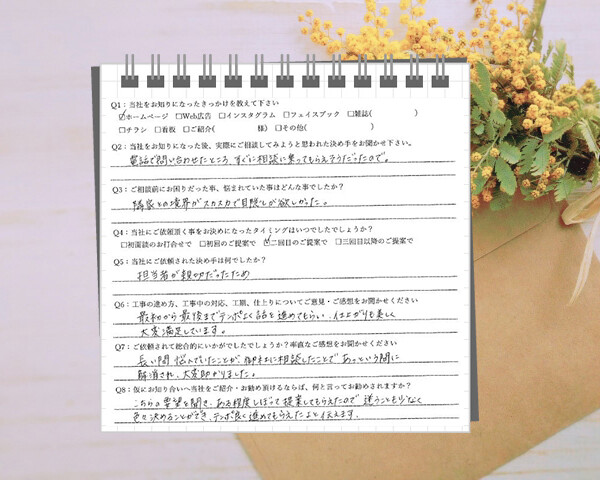 Q1：当社をお知りになったきっかけを教えて下さい
☑ホームページ □Web広告 □インスタグラム □フェイスブック □雑誌( )
□チラシ □看板 □ご紹介( 様) □その他( )
Q2：当社をお知りになった後、実際にご相談してみようと思われた決め手をお聞かせ下さい。
電話で問い合わせたところ、すぐに相談に乗ってもらえそうだったので。
Q3：ご相談前にお困りだった事、悩まれていた事はどんな事でしたか？
隣家との境界がスカスカで目隠しが欲しかった。
Q4：当社にご依頼頂く事をお決めになったタイミングはいつでしたでしょうか？
□初面談のお打合せで □初回のご提案で ☑二回目のご提案で □三回目以降のご提案で
Q5：当社にご依頼された決め手は何でしたか？
担当者が親切だったため
Q6：工事の進め方、工事中の対応、工期、仕上りについてご意見・ご感想をお聞かせください
最初から最後までテンポよく話を進めてもらい、仕上がりも美しく
大変満足しています。
Q7：ご依頼されて総合的にいかがでしたでしょうか？率直なご感想をお聞かせください
長い間悩んでいたことが、御社に相談したことであっという間に
解消され、大変助かりました。
Q8：仮にお知り合いへ当社をご紹介・お勧め頂けるならば、何と言ってお勧めされますか？
こちらの要望を聞き、ある程度しぼって提案してもらえたので迷うことも少なく
色々決めることができ、テンポ良く進めてもらえたよと伝えます。